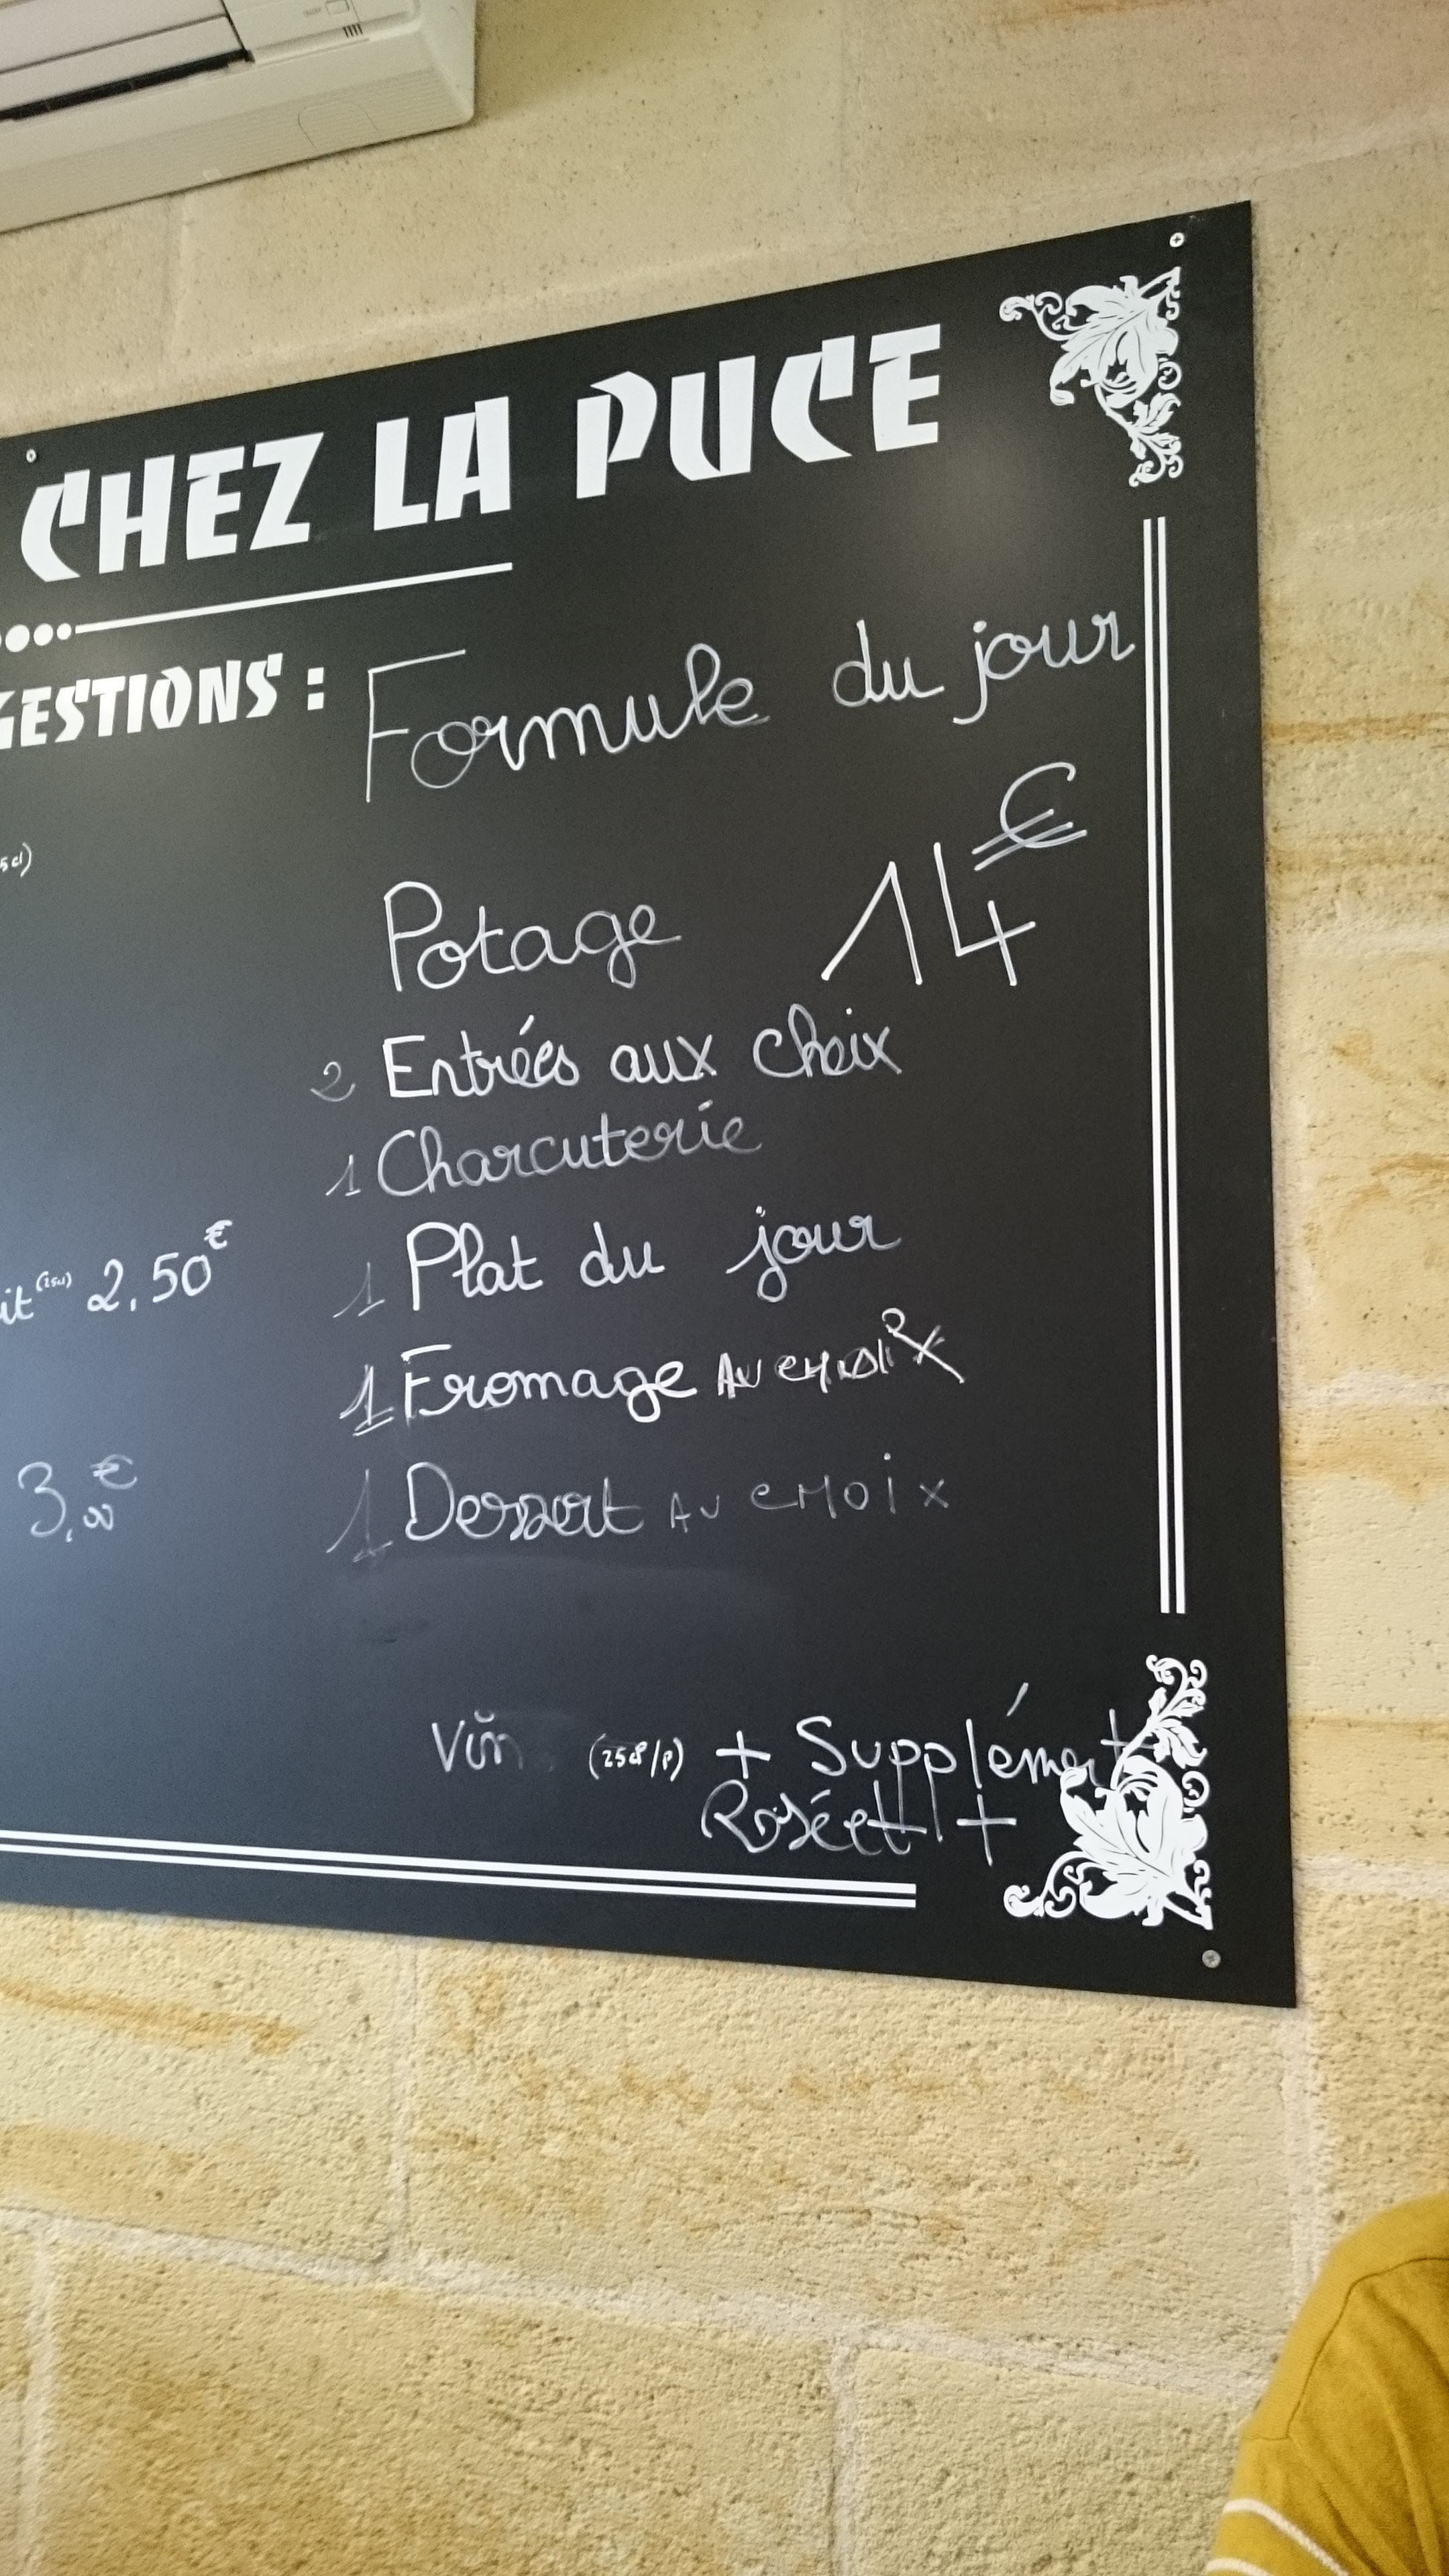 CHEZ LA PUCE
GESTIONS :
Formule du jour
5cl)
14€
Potage
2 Entrées aux choix
1 Charcuterie
1 Plat du jour
it (25cl) 2,50€
1 Fromage AU CHOIX
3,00€
1 Dessert AU CHOIX
Vin (25cl/p) + Supplément
Rosé +